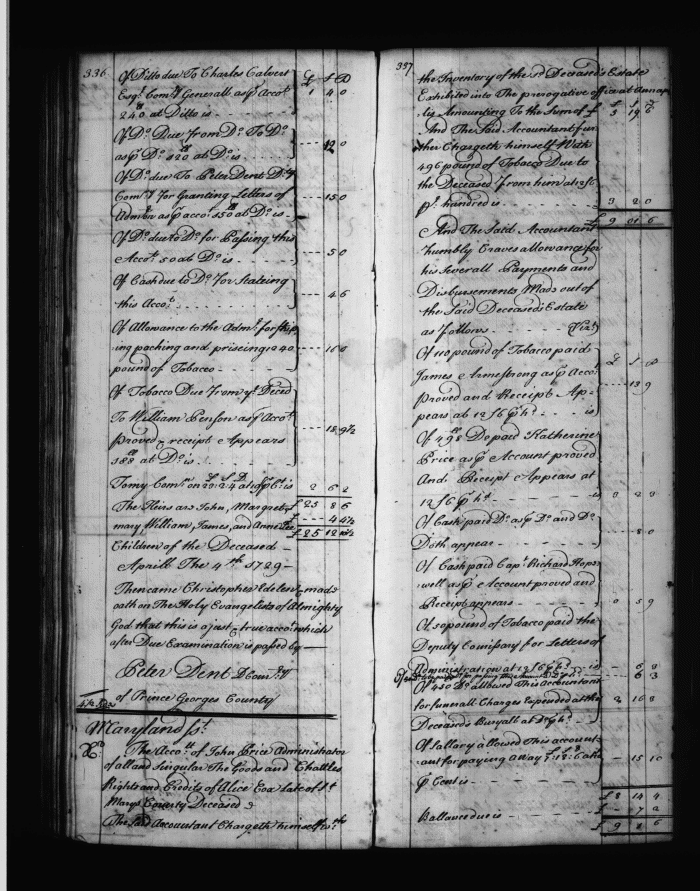 336
Of Ditto due To Charles Calvert £ S D
Esqr. Comry. Generall as pr Accot. 1 4 0
240 at Ditto is
Of Do. Due from Do. To Do. 12 0
as pr Do. 120 at Do. is
Of Do. due to Peter Dent Dty
Comry. For Granting Letters of 15 0
Admon as pr acco: 150 at Do. is
Of Do. due to Do. for Passing this
Accot. 50 at Do. is 5 0
Of Cash due to Do. For Stateing
this Accot. 4 6
Of Allowance to the Admr. for
ing packing and priseing 1240 16 0
pound of Tobacco
Of Tobacco Due from ye Deced
To William Penson as pr Accot.
proved & receipt Appears 18 9½
188 at Do. is
To my Com: on at pr Ct. is 2 6 2
The Heirs are John, Margret £ 23 8 6
mary William, James, and Anne 4 4½
Children of the Deceased £ 25 12 10½
Aprill The 4th 1729
Then came Christopher Edelen & made
oath on The Holy Evangelists of Almighty
God that this is a just & true accot. which
after Due Examination is passed by
Peter Dent D Comry.
of Prince Georges County
Maryland ss.
The Accot. of John Price Administrator
of all and Singular The Goods and Chattles
Rights and Credits of Alice Cox Late of St
Marys County Deceased
The Said Accountant Chargeth himself wth
337
the Inventory of the sd Deceased's Estate
Exhibited into The prerogative office at Annap
lis Amounting To the Sum of £ 3 19 6
And The Said Accountant fur
ther Chargeth himself With
496 pound of Tobacco Due to
the Deceased from him at 12/6
pr. hundred is 3 2 0
And The Said Accountant £ 9 01 6
humbly Craves allowance for
his Severall Payments and
Disbursements Made out of
the Said Deceased's Estate
as follows (Vizt)
Of 110 pound of Tobacco paid £ S D
James Armstrong as pr Accot.
proved and Receipt Ap- 13 9
pears at 12/6 pr hd. is
Of 498 Do paid Katherine
Price as pr Account proved
And Receipt Appears at
12/6 pr hd.
Of Cash paid Do. as pr Do. and Do.
Doth appear 8 0
Of Cash paid Capt. Richard Hops
well as pr Account proved and
Receipt appears 0 5 9
Of 50 pound of Tobacco paid the
Deputy Comissary for Letters of
Administration at 12/6 pr hd. is 6 3
Of 450 Do. allowed This Accountant
for funerall Charges Expended at the 2 16 3
Deceased's Buryall at Do. pr hd.
Of Sallary allowed This account-
ant for paying away 15 10
pr Cent is
£ 8 14 4
Ballance due is 7 2
£ 9 1 6